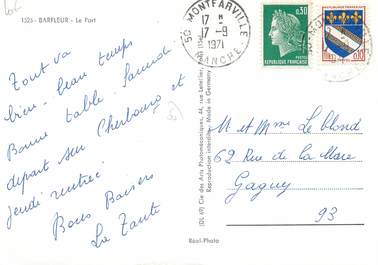 1525 - BARFLEUR - Le Port
Tout va
bien. beau temps
Bonne table. Samedi
depart sur Cherbourg et
jeudi rentrée.
Bons Baisers
La Tante
(DL 69) Cie des Arts Photomécaniques, 44, rue Letellier, Paris (15e)
Reproduction interdite - Made in Germany
Réal-Photo
50 MONTFARVILLE
17 H
17 -9
1971
MANCHE
0,30
REPUBLIQUE FRANÇAISE
0,10
M et Mme Le blond
62 Rue de la Mare
Gagny
93